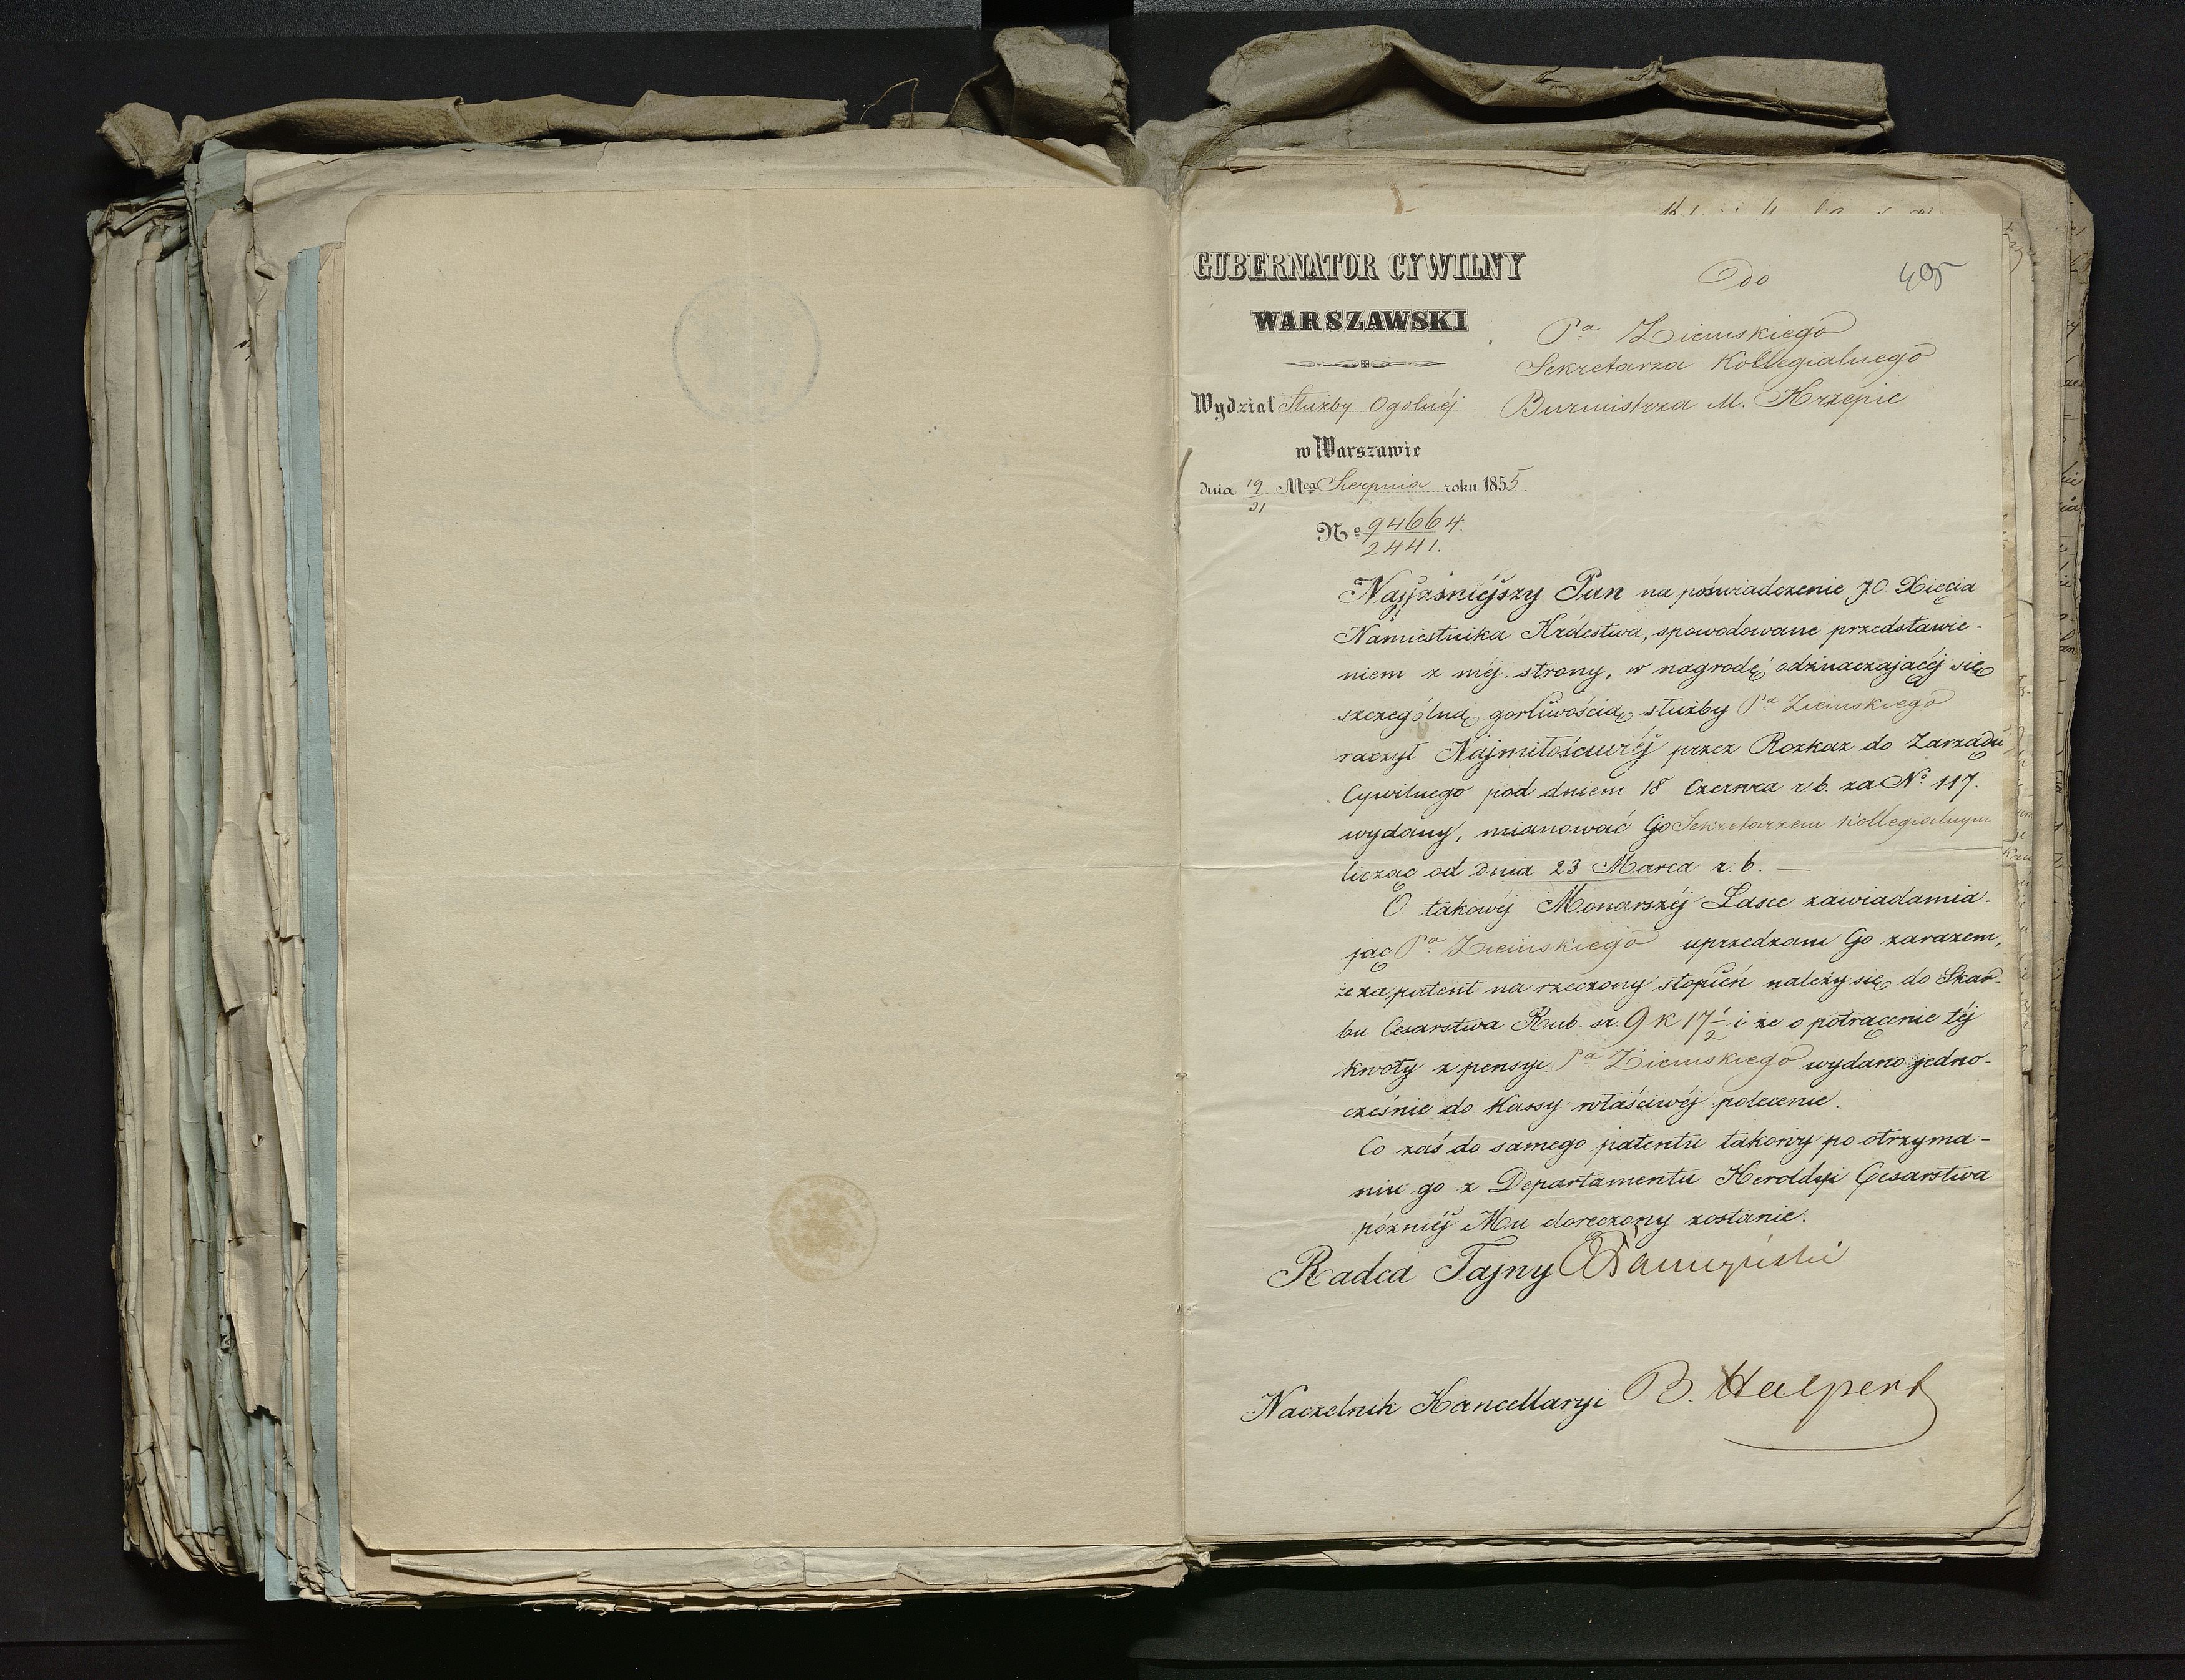 GUBERNATOR CYWILNY
WARSZAWSKI
Wydział Służby Ogólnéj
w Warszawie
dnia 19/31 Mca Sierpnia roku 1855.
No 94664./2441.
495
Do
Pa Ziemskiego
Sekretarza Kollegialnego
Burmistrza M. Krzepic
Najjaśniéjszy Pan na poświadczenie JO. Xięcia
Namiestnika Królestwa, spowodowane przedstawie-
niem z méj strony, w nagrodę odznaczającéj się
szczególną gorliwością służby Pa Ziemskiego
raczył Najmiłościwiéj przez Rozkaz do Zarządu
Cywilnego pod dniem 18 Czerwca r. b. za No 117.
wydany, mianować Go Sekretarzem Kollegialnym
licząc od dnia 23 Marca r. b. —
O takowéj Monarszéj Łasce zawiadamia-
jąc Pa Ziemskiego uprzedzam Go zarazem,
że za patent na rzeczony stopień należy się do Skar-
bu Cesarstwa Rub. sr. 9 k 17 1/2 i że o potrącenie téj
kwoty z pensyi Pa Ziemskiego wydano jedno-
cześnie do Kassy właściwéj polecenie.
Co zaś do samego patentu takowy po otrzyma-
niu go z Departamentu Heroldyi Cesarstwa
późniéj Mu doręczony zostanie.
Radca Tajny
Naczelnik Kancellaryi B. Halpert